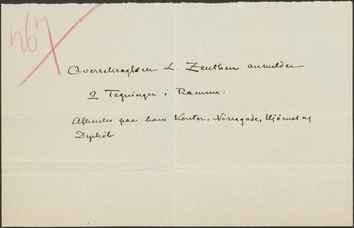 467
Overretssagfører L. Zeuthen anmelder
2 Tegninger i Ramme.
Afhentes paa hans Kontor, Nørregade, Hjørnet af
Dyrkøb